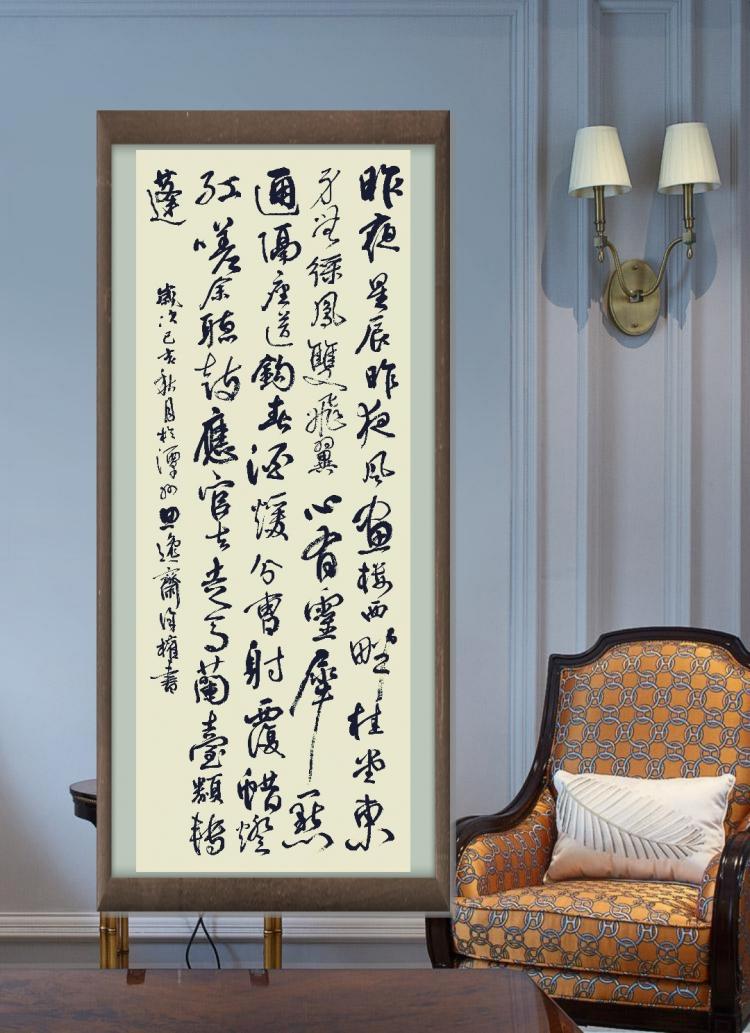 昨夜星辰昨夜風畫樓西畔桂堂東
身無綵鳳雙飛翼心有靈犀一點
通隔座送鉤春酒煖分曹射覆蠟燈
紅嗟余聽鼓應官去走馬蘭臺類轉
蓬
歲次己亥秋月於潭州逸齋權書